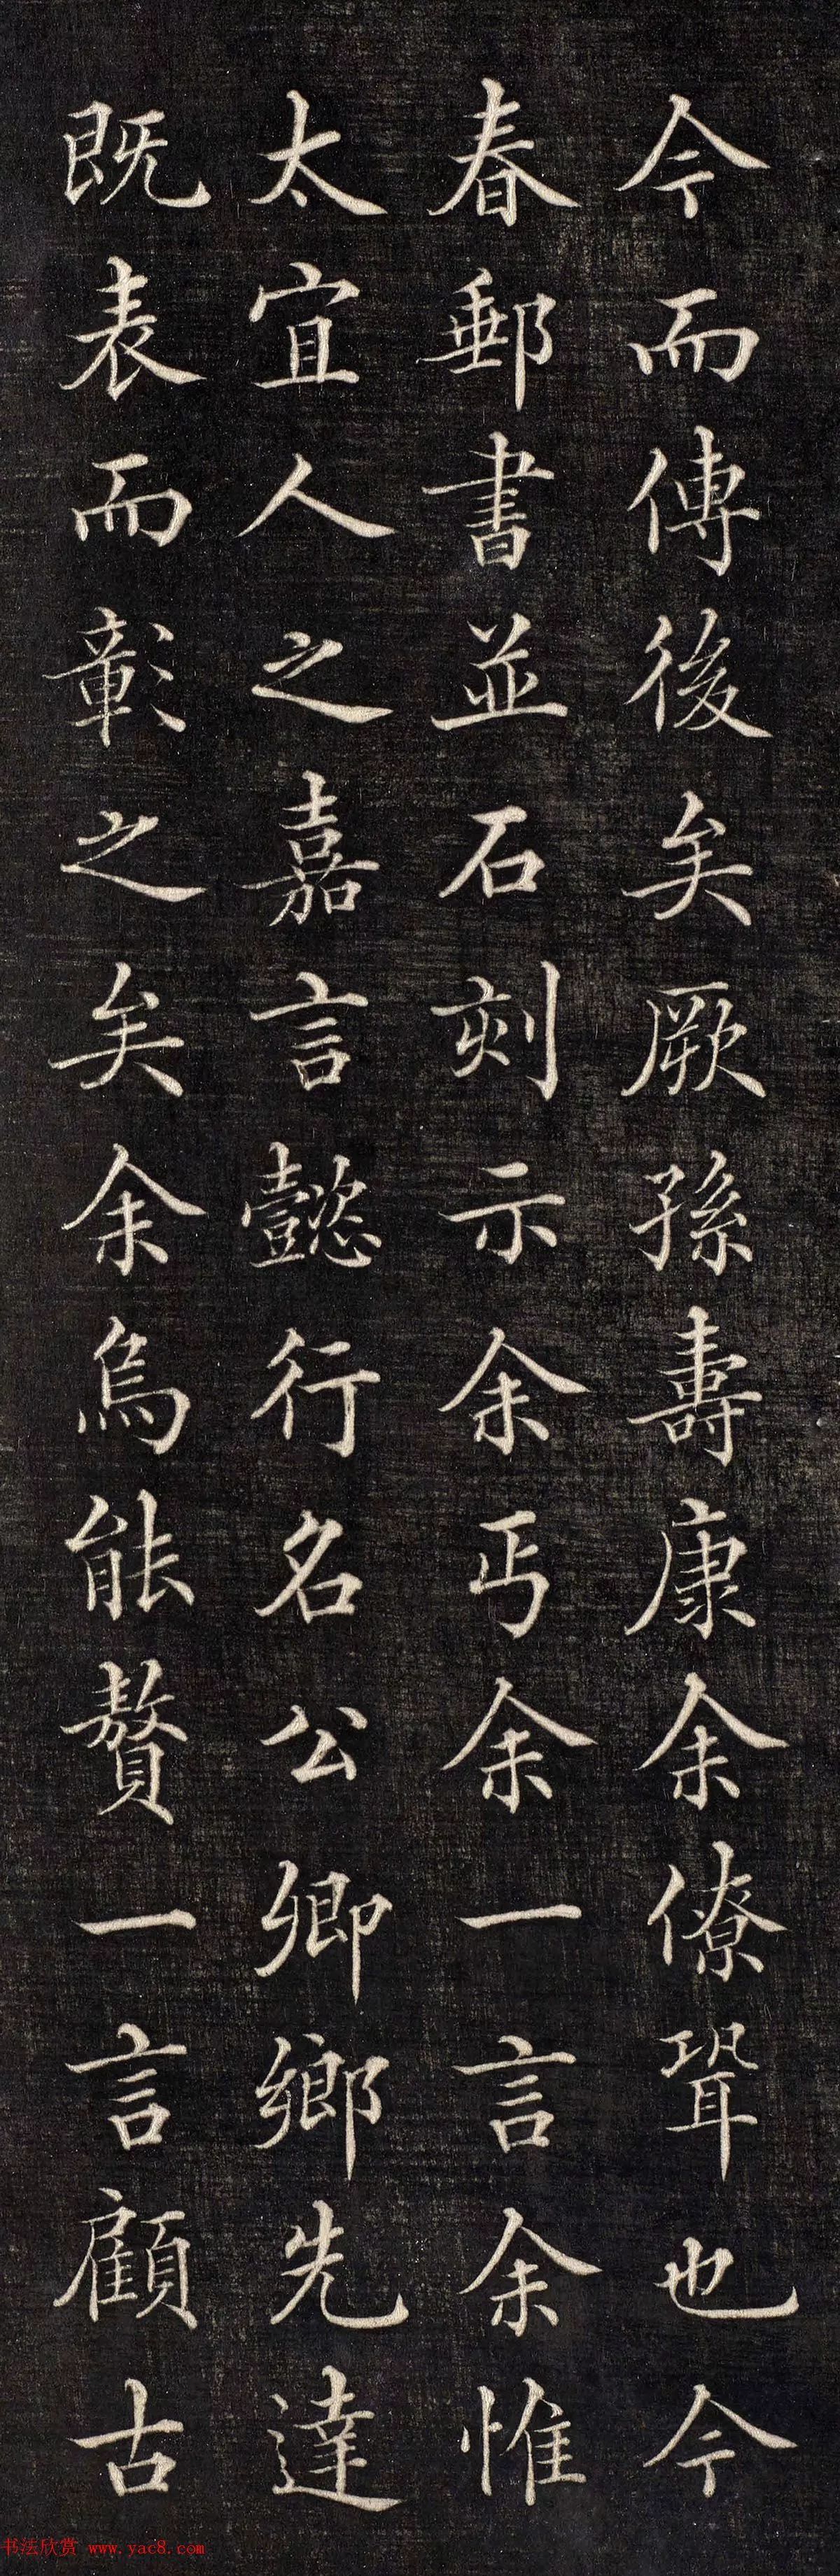 今而傳後矣厥孫壽康余僚壻也今
春郵書並石刻示余丐余一言余惟
太宜人之嘉言懿行名公卿鄉先達
既表而彰之矣余烏能贅一言顧古
书法欣赏 www.yac8.com